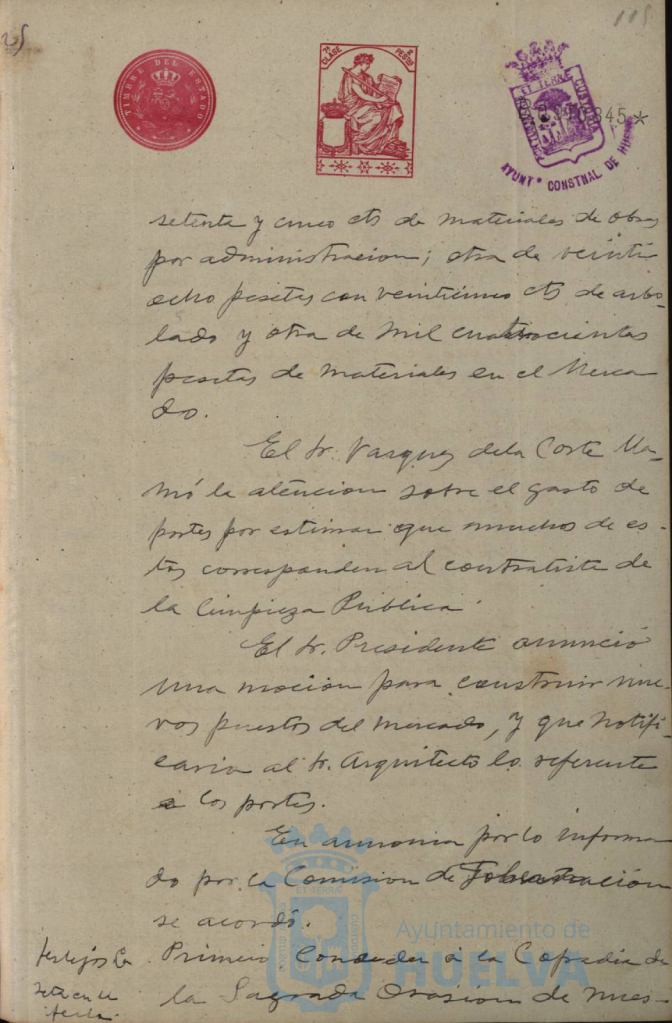 25
115
TIMBRE DEL ESTADO
7ª CLASE
PESETAS
ET TERRÆ CUSTODIA
AYUNTº CONSTNAL DE HUELVA
setenta y cinco cts de materiales de obras
por administracion; otra de veinti
ocho pesetas con veinticinco cts de arbo-
lado y otra de mil cuatrocientas
pesetas de materiales en el Merca
do.
El Sr. Vazquez de la Corte lla-
mó la atencion sobre el gasto de
portes por estimar que muchos de es-
tos corresponden al contratista de
la limpieza Pública.
El Sr. Presidente anunció
una mocion para construir nue-
vos puestos del mercado, y que notifi-
caria al Sr. Arquitecto lo referente
a los portes.
En armonia por lo informa
do por la Comision de
se acordó.
Primero Conceder á la Cofradia de
la Sagrada Orasion de nues-
Ayuntamiento de
HUELVA